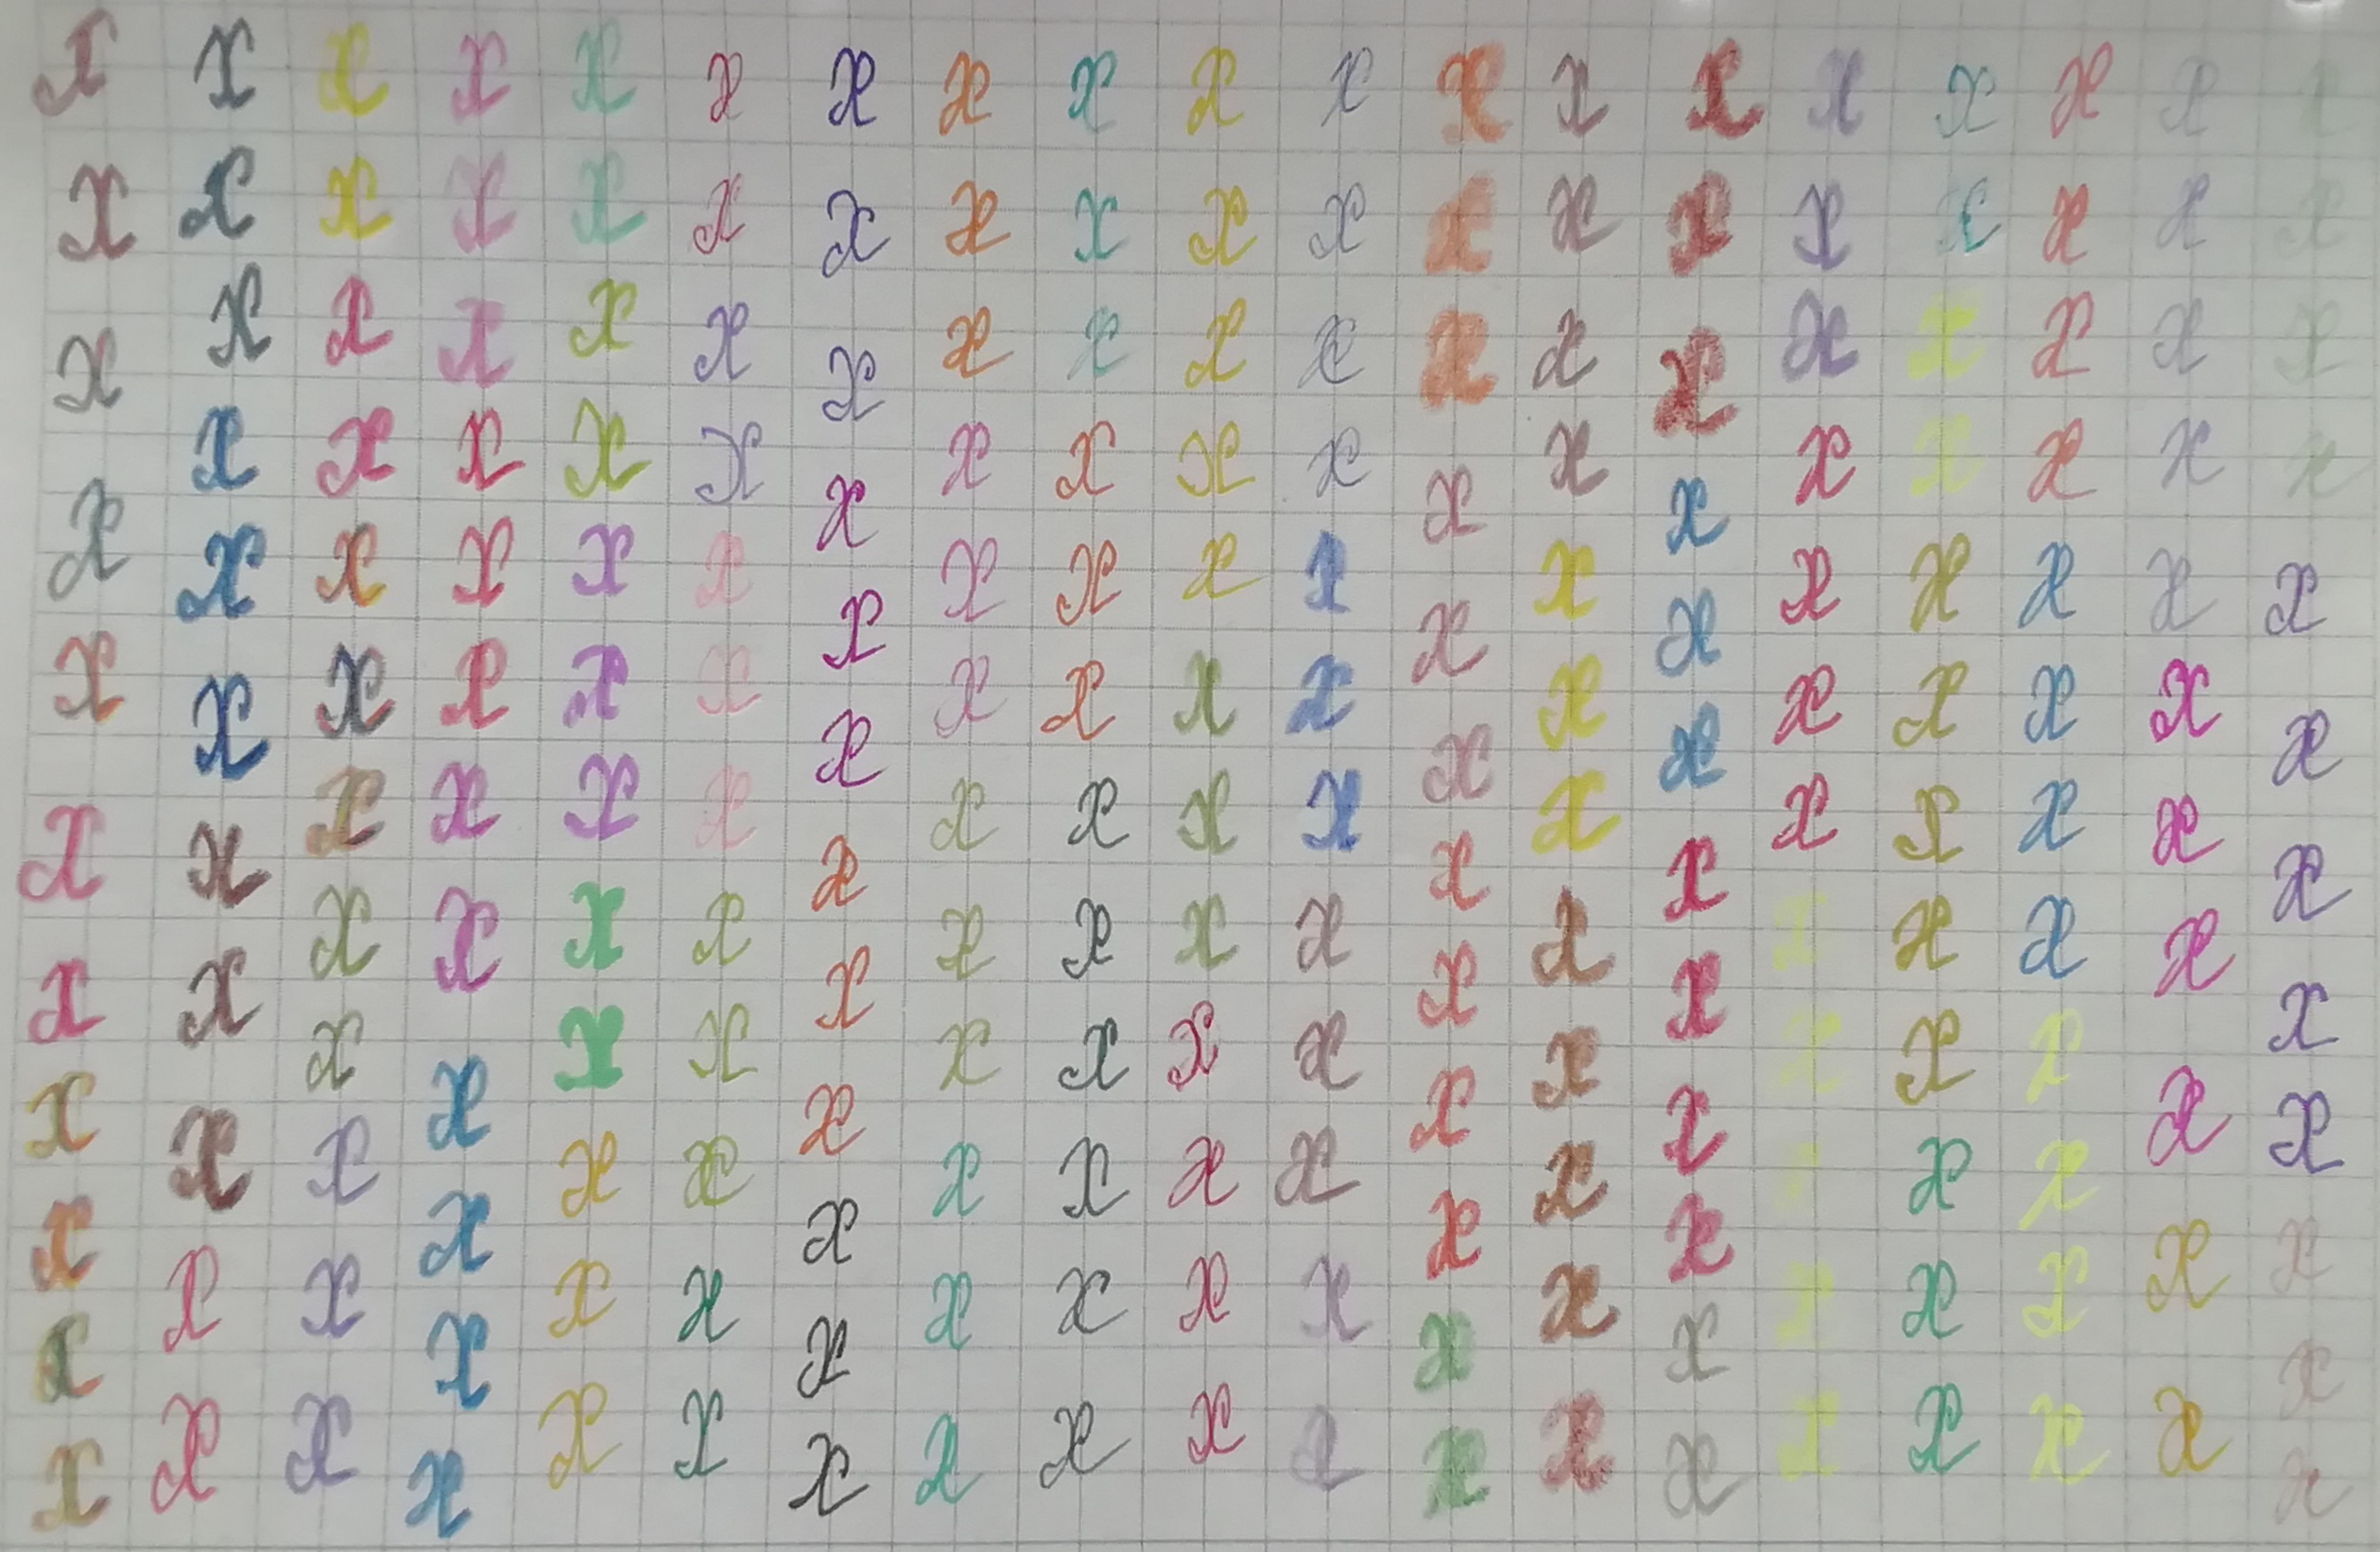 X X X X X X X X X X X X X X X X X X X
X X X X X X X X X X X X X X X X X X X
X X X X X X X X X X X X X X X X X X X
X X X X X X X X X X X X X X X X X X X
X X X X X X X X X X X X X X X X X X X
X X X X X X X X X X X X X X X X X X X
X X X X X X X X X X X X X X X X X X X
X X X X X X X X X X X X X X X X X X X
X X X X X X X X X X X X X X X X X X X
X X X X X X X X X X X X X X X X X X X
X X X X X X X X X X X X X X X X X X X
X X X X X X X X X X X X X X X X